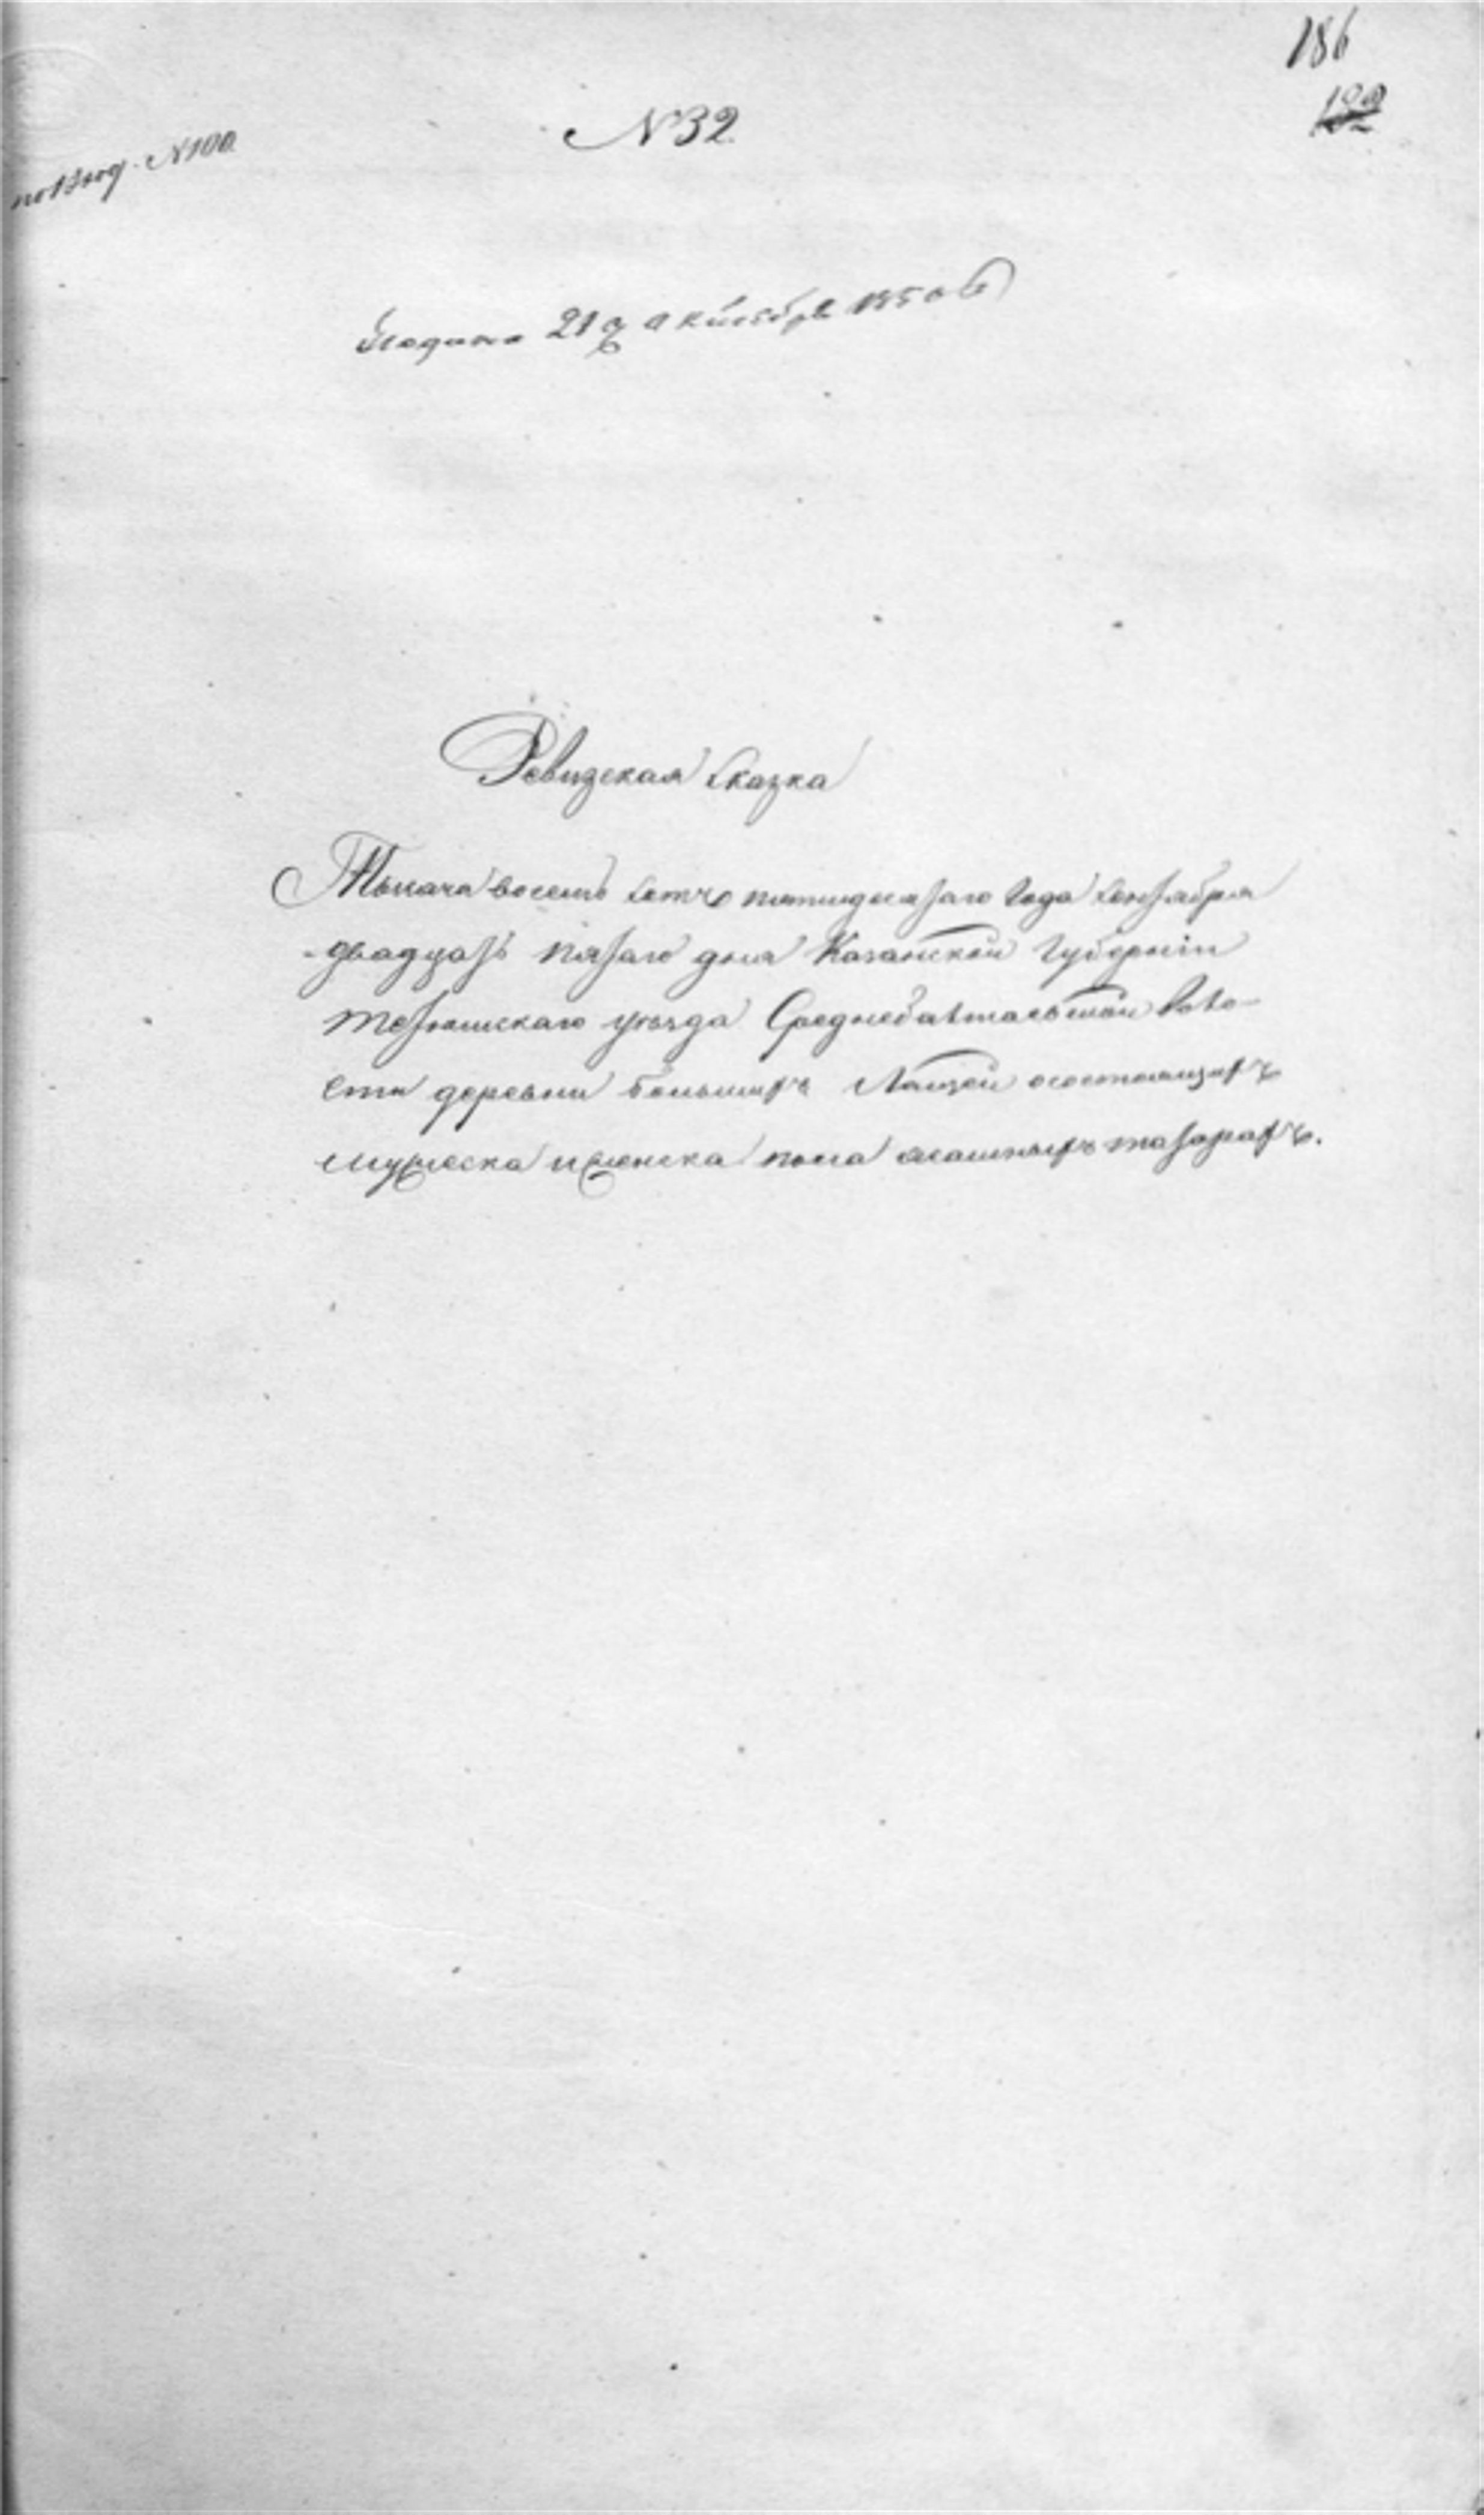 186
N 32
N 100
Подана 21 октября 1850 г
Ревизская сказка
Тысяча восемь сотъ пятидесятаго года сентября
двадцать пятаго дня Казанской губерніи
Тетюшскаго уѣзда Среднебалтаевской воло-
сти деревни Большихъ Лащей осостоящихъ
мужеска и женска пола ясашныхъ татарахъ.